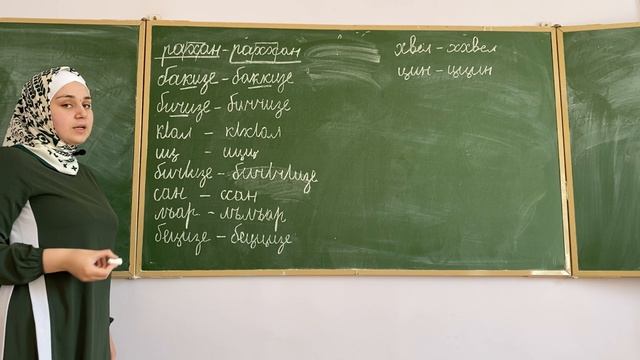 рахан - раххан
бакизе - баккизе
бичизе - биччизе
кӏал - кӏкӏал
иц - ицц
бичӏизе - бичӏчӏизе
сан - ссан
лъар - лълъар
бецизе - беццизе
хвел - ххвел
цин - ццин